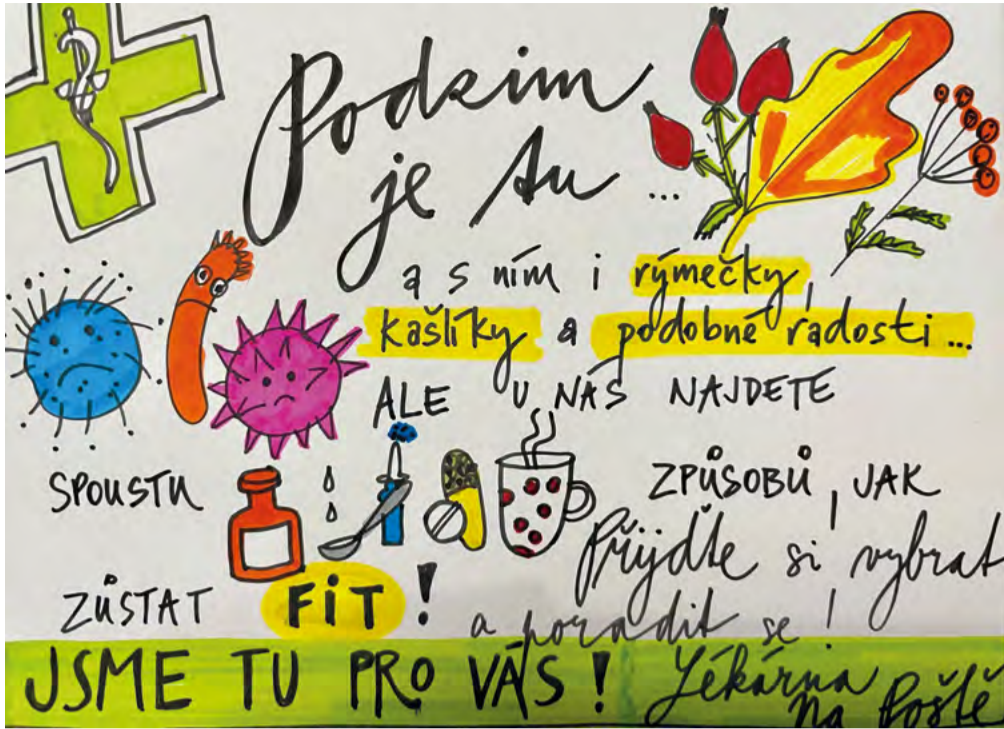 Podzim
je tu ...
a s ním i rýmečky,
kašlíky a podobné radosti ...
ALE U NÁS NAJDETE
SPOUSTU ZPŮSOBŮ, JAK
ZŮSTAT FiT!
Přijďte si vybrat
a poradit se!
JSME TU PRO VÁS!
Lékárna
na Poště